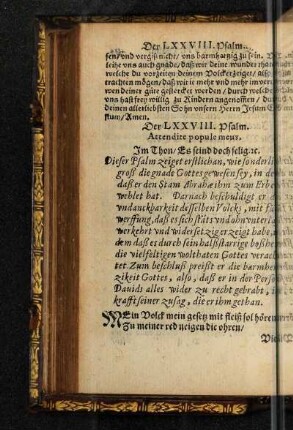 Der LXXVIII. Psalm.
sen/ und vergiß nicht/ uns barmhertzig zu sein.
leihe uns auch gnade/ daß wir deine wunder
welche du vorzeiten deinem Volck erzeiget/ also
trachten mögen/ daß wir je mehr und mehr im
wen deiner güte gestercket werden/ durch welche
uns hast frey willig zu Kindern angenommen/ durch
deinen allerliebsten Sohn unsern Herrn Jesum
stum/ Amen.
Der LXXVIII. Psalm.
Attendite popule meus.
Im Thon/ Es seind doch selig ꝛc.
Dieser Psalm zeiget erstlichan, wie sonderlich
groß die gnade Gottes gewesen sey, in dem
daß er den Stam Abrahæ ihm zum Erbe
wehlet hat. Darnach beschuldigt er
undanckbarkeit desselben Volcks, mit
werffung, daß es sich stäts und ohn unter
verkehrt und widersetzig erzeigt habe,
dem daß es durch sein halßstarrige boßheit
die vielfeltigen wolthaten Gottes verach
tet Zum beschluß preißt er die barmher
tzikeit Gottes, also, daß er in der Person
Davids alles wider zu recht gebracht,
krafft seiner zusag, die er ihm gethan.
MEin Volck mein gesetz mit fleiß sol hören
Zu meiner red neigen die ohren/